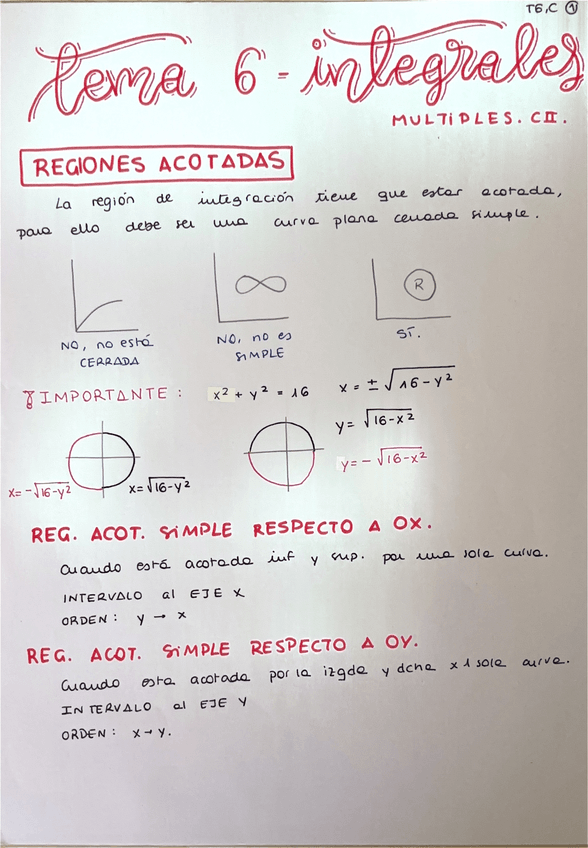 T6,C 1
tema 6 - integrales
MULTIPLES. CII.
REGIONES ACOTADAS
La región de integración tiene que estar acotada,
para ello debe ser una curva plana cerrada simple.
R
NO, no está
CERRADA
NO, no es
SiMPLE
SÍ.
IMPORTANTE :
x² + y² = 16
x = ± √16 - y²
y = √16-x²
y = - √16-x²
x= -√16-y²
x=√16-y²
REG. ACOT. SiMPLE RESPECTO A OX.
Cuando está acotada inf y sup. por una sola curva.
INTERVALO al EJE X
ORDEN : y → x
REG. ACOT. SiMPLE RESPECTO A OY.
Cuando esta acotada por la izqda y dcha x 1 sola curva.
INTERVALO al EJE Y
ORDEN : x → y.